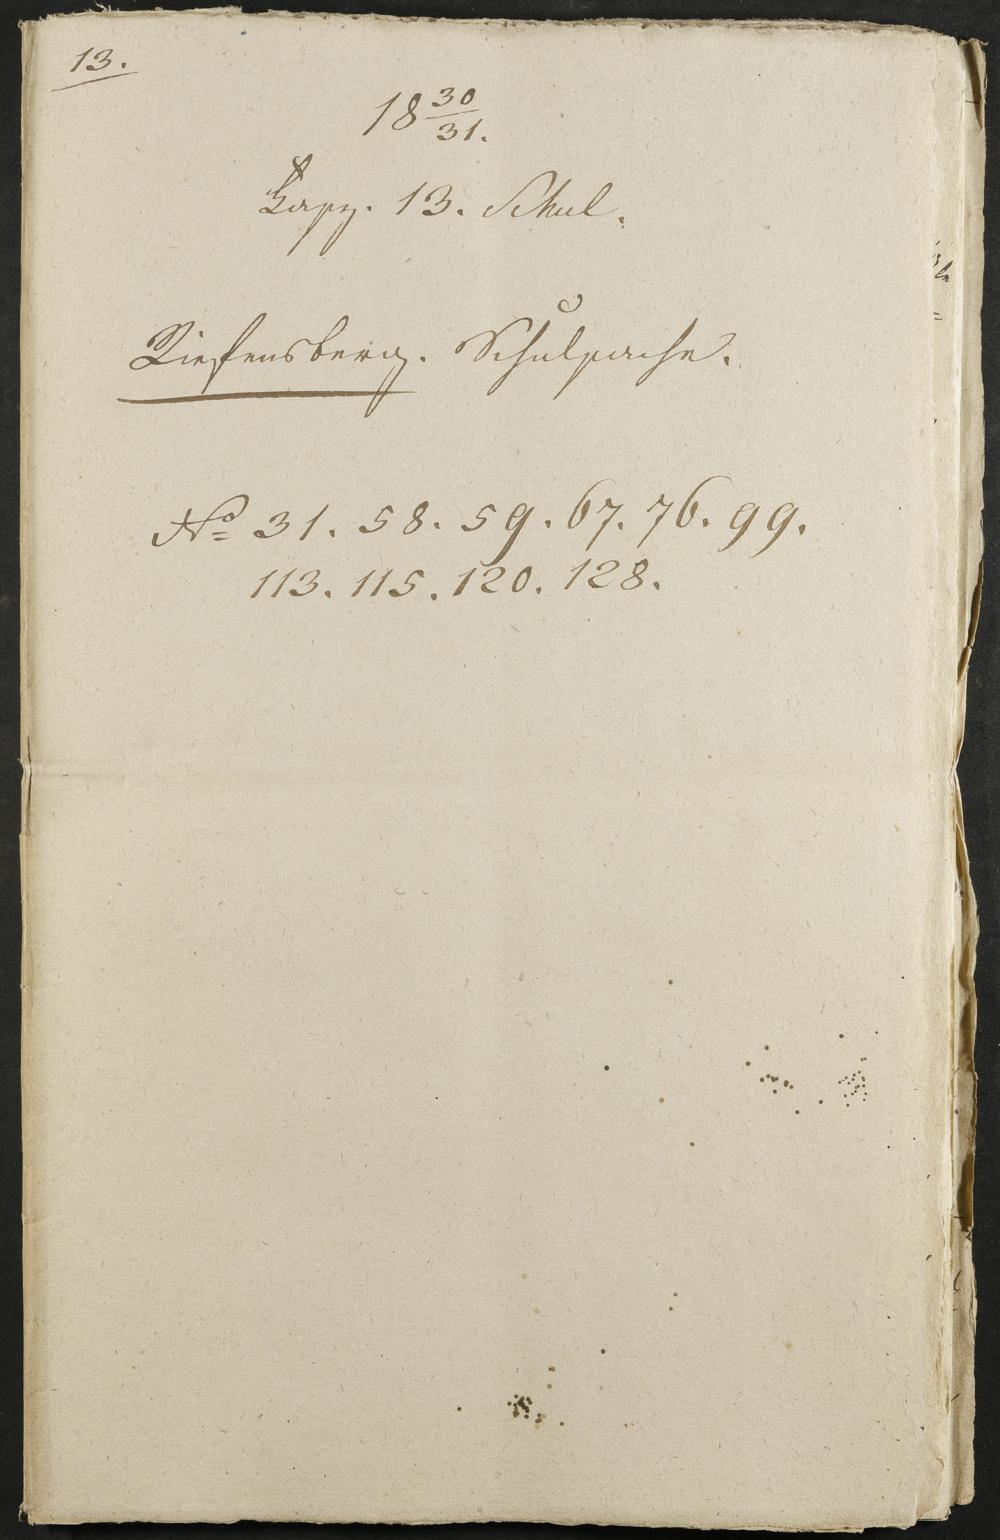 13.
18 30/31.
Fasz. 13. Schul.
Riefensberg. Schulsache.
No 31. 58. 59. 67. 76. 99.
113. 115. 120. 128.